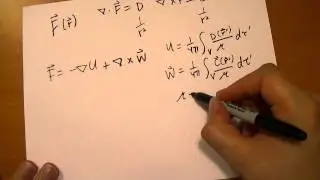 F⃗(r⃗) ∇·F⃗ = D
1/r² 1/r²
F⃗ = -∇U + ∇×W⃗
U = 1/4π ∫ᵥ D(r⃗')/𝓇 dτ'
W⃗ = 1/4π ∫ᵥ C⃗(r⃗')/𝓇 dτ'
𝓇